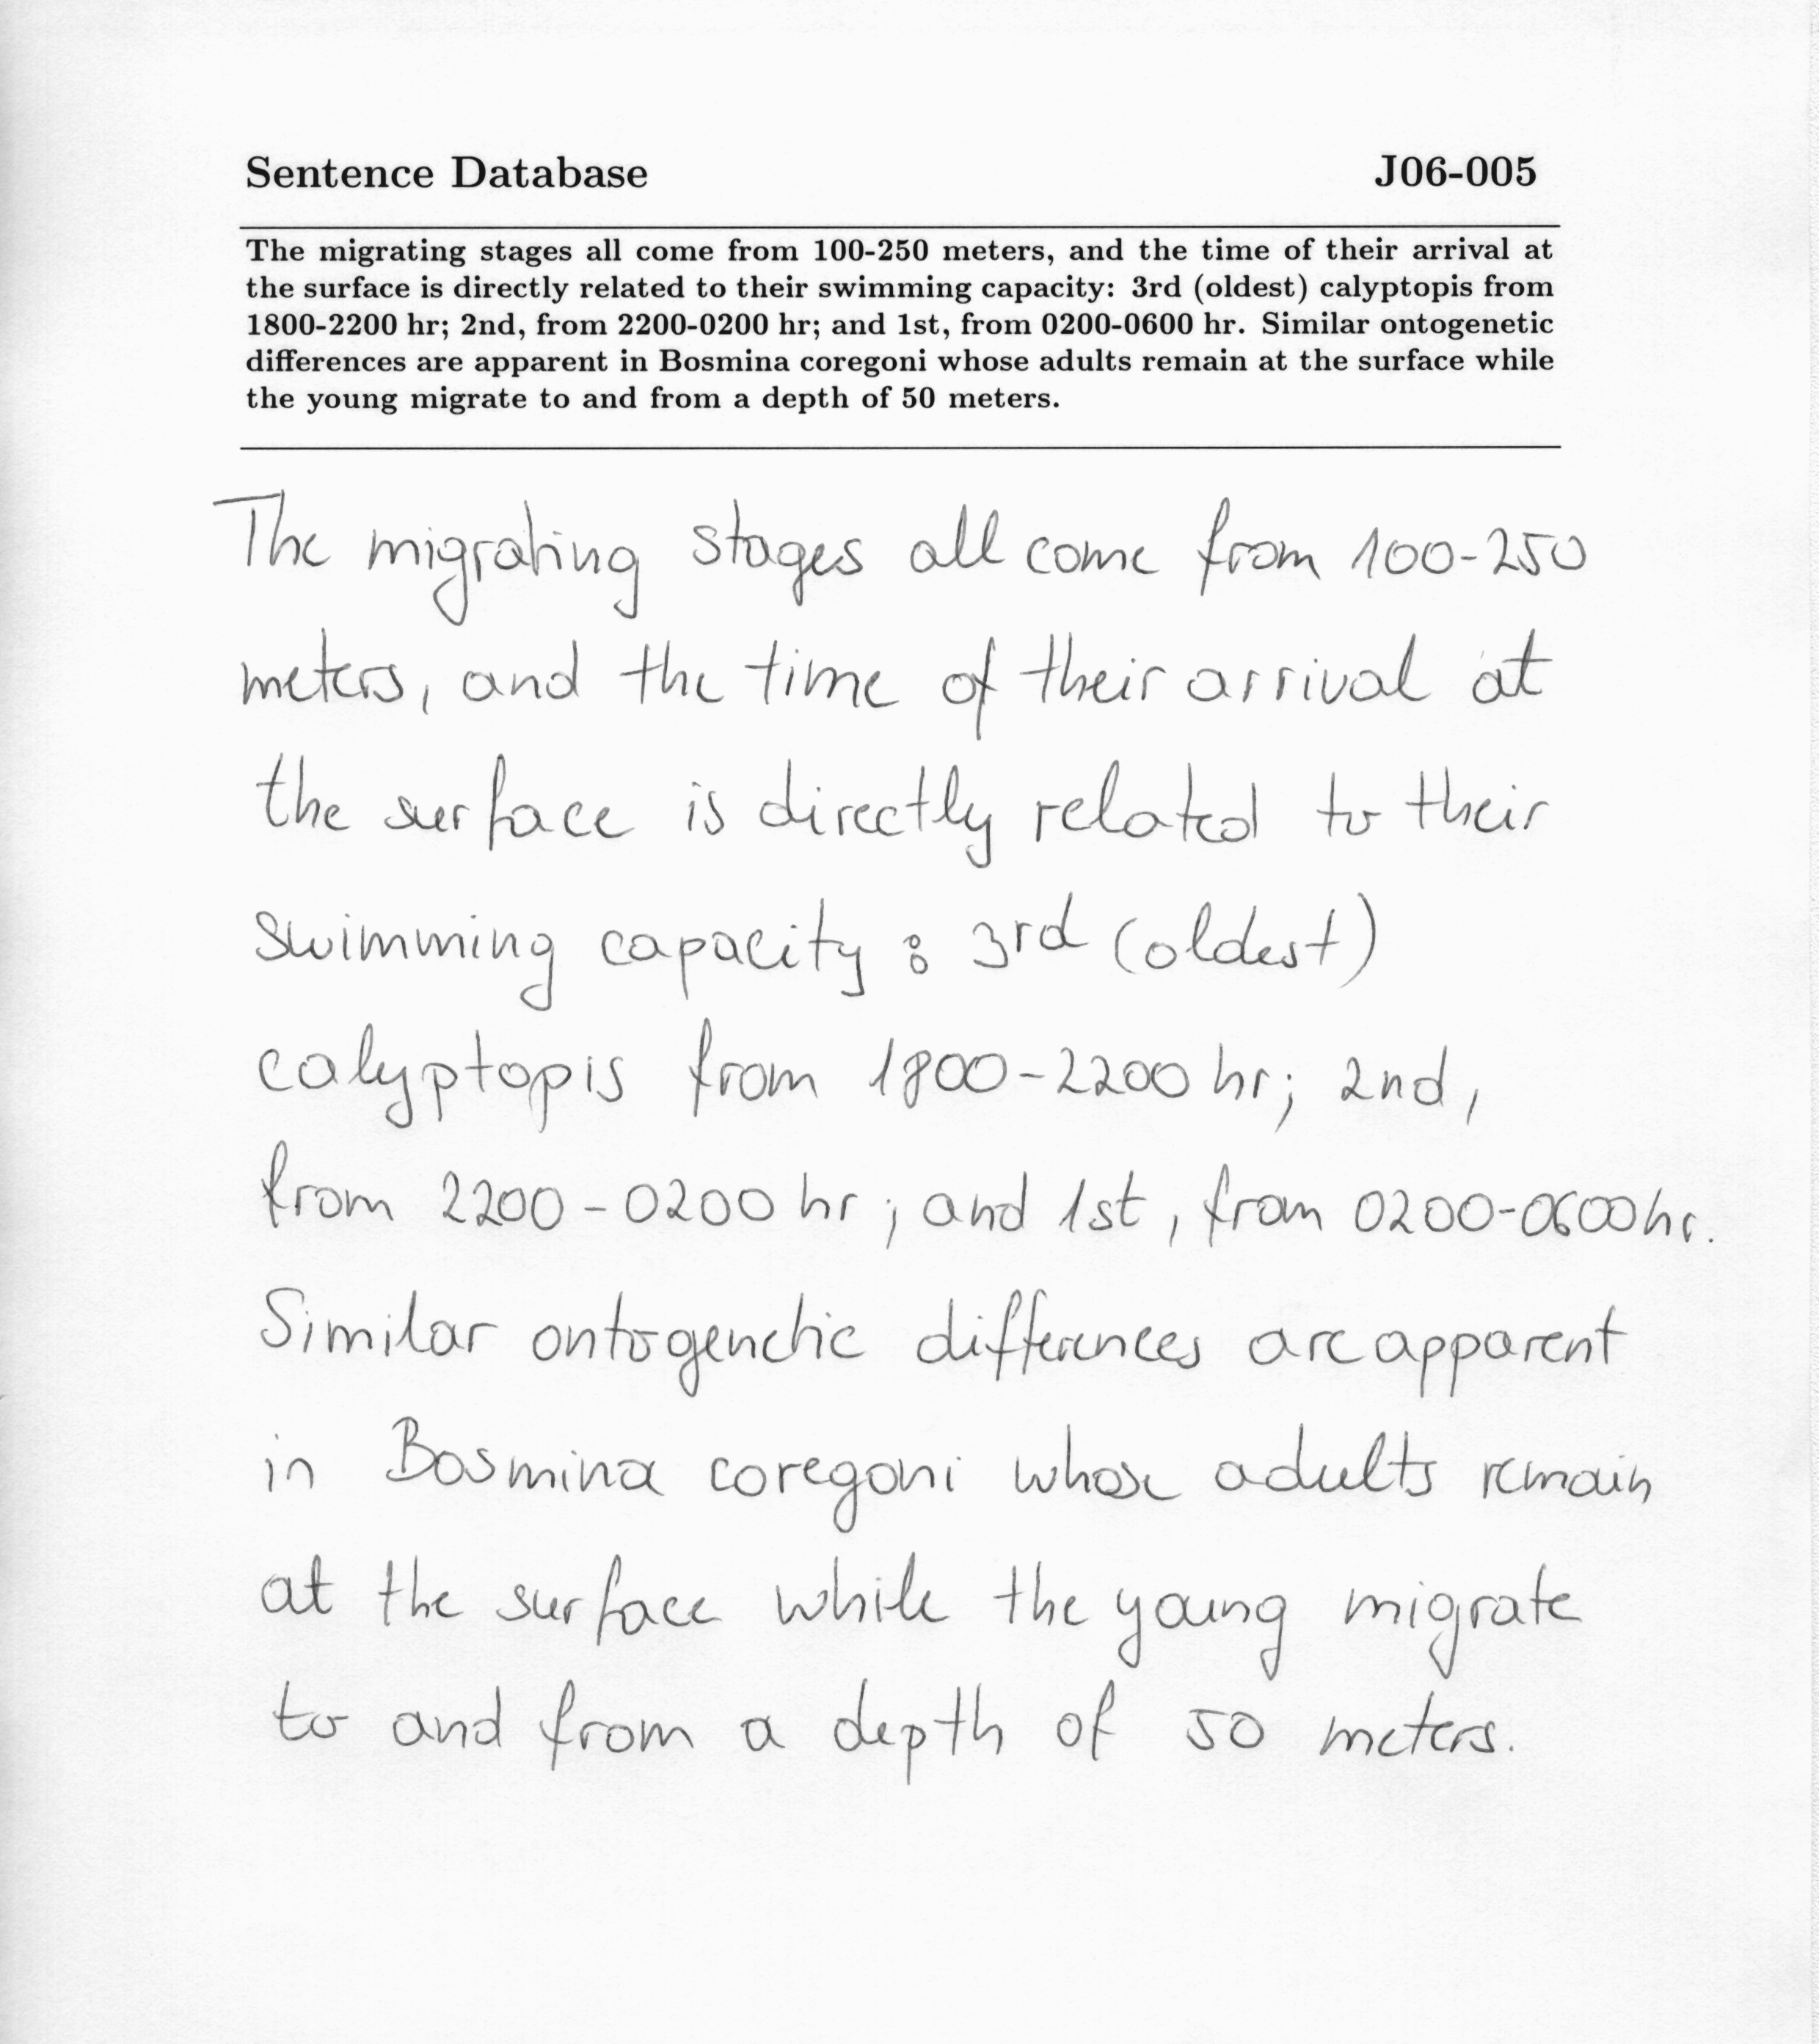 Sentence Database J06-005
The migrating stages all come from 100-250 meters, and the time of their arrival at
the surface is directly related to their swimming capacity: 3rd (oldest) calyptopis from
1800-2200 hr; 2nd, from 2200-0200 hr; and 1st, from 0200-0600 hr. Similar ontogenetic
differences are apparent in Bosmina coregoni whose adults remain at the surface while
the young migrate to and from a depth of 50 meters.
The migrating stages all come from 100-250
meters, and the time of their arrival at
the surface is directly related to their
swimming capacity : 3rd (oldest)
calyptopis from 1800-2200 hr; 2nd,
from 2200-0200 hr ; and 1st, from 0200-0600 hr.
Similar ontogenetic differences are apparent
in Bosmina coregoni whose adults remain
at the surface while the young migrate
to and from a depth of 50 meters.